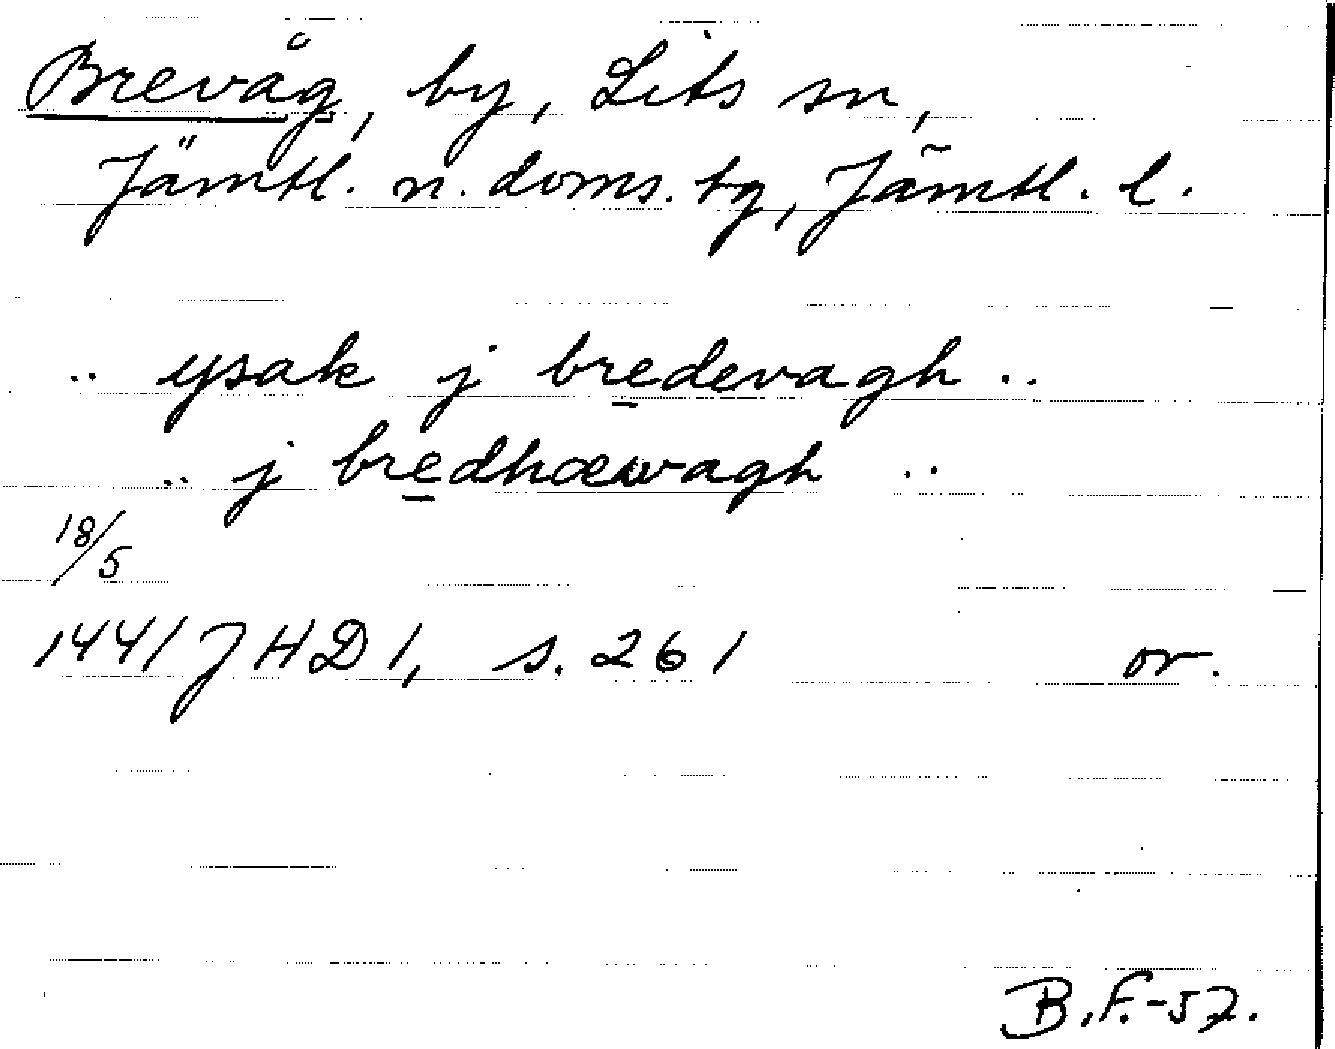 Brevåg, by, Lits sn,
Jämtl. n. doms. tg, Jämtl. l.
.. ysak j bredevagh ..
.. j bredhæwagh ..
18/5
1441 JHD 1, s. 261 or.
B.F.-57.